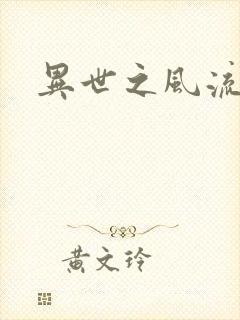 異世之風流
黄文玲